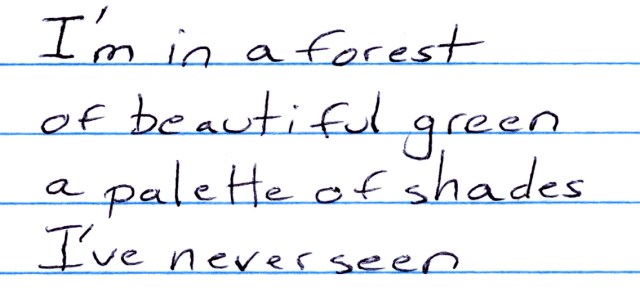 I'm in a forest
of beautiful green
a palette of shades
I've never seen